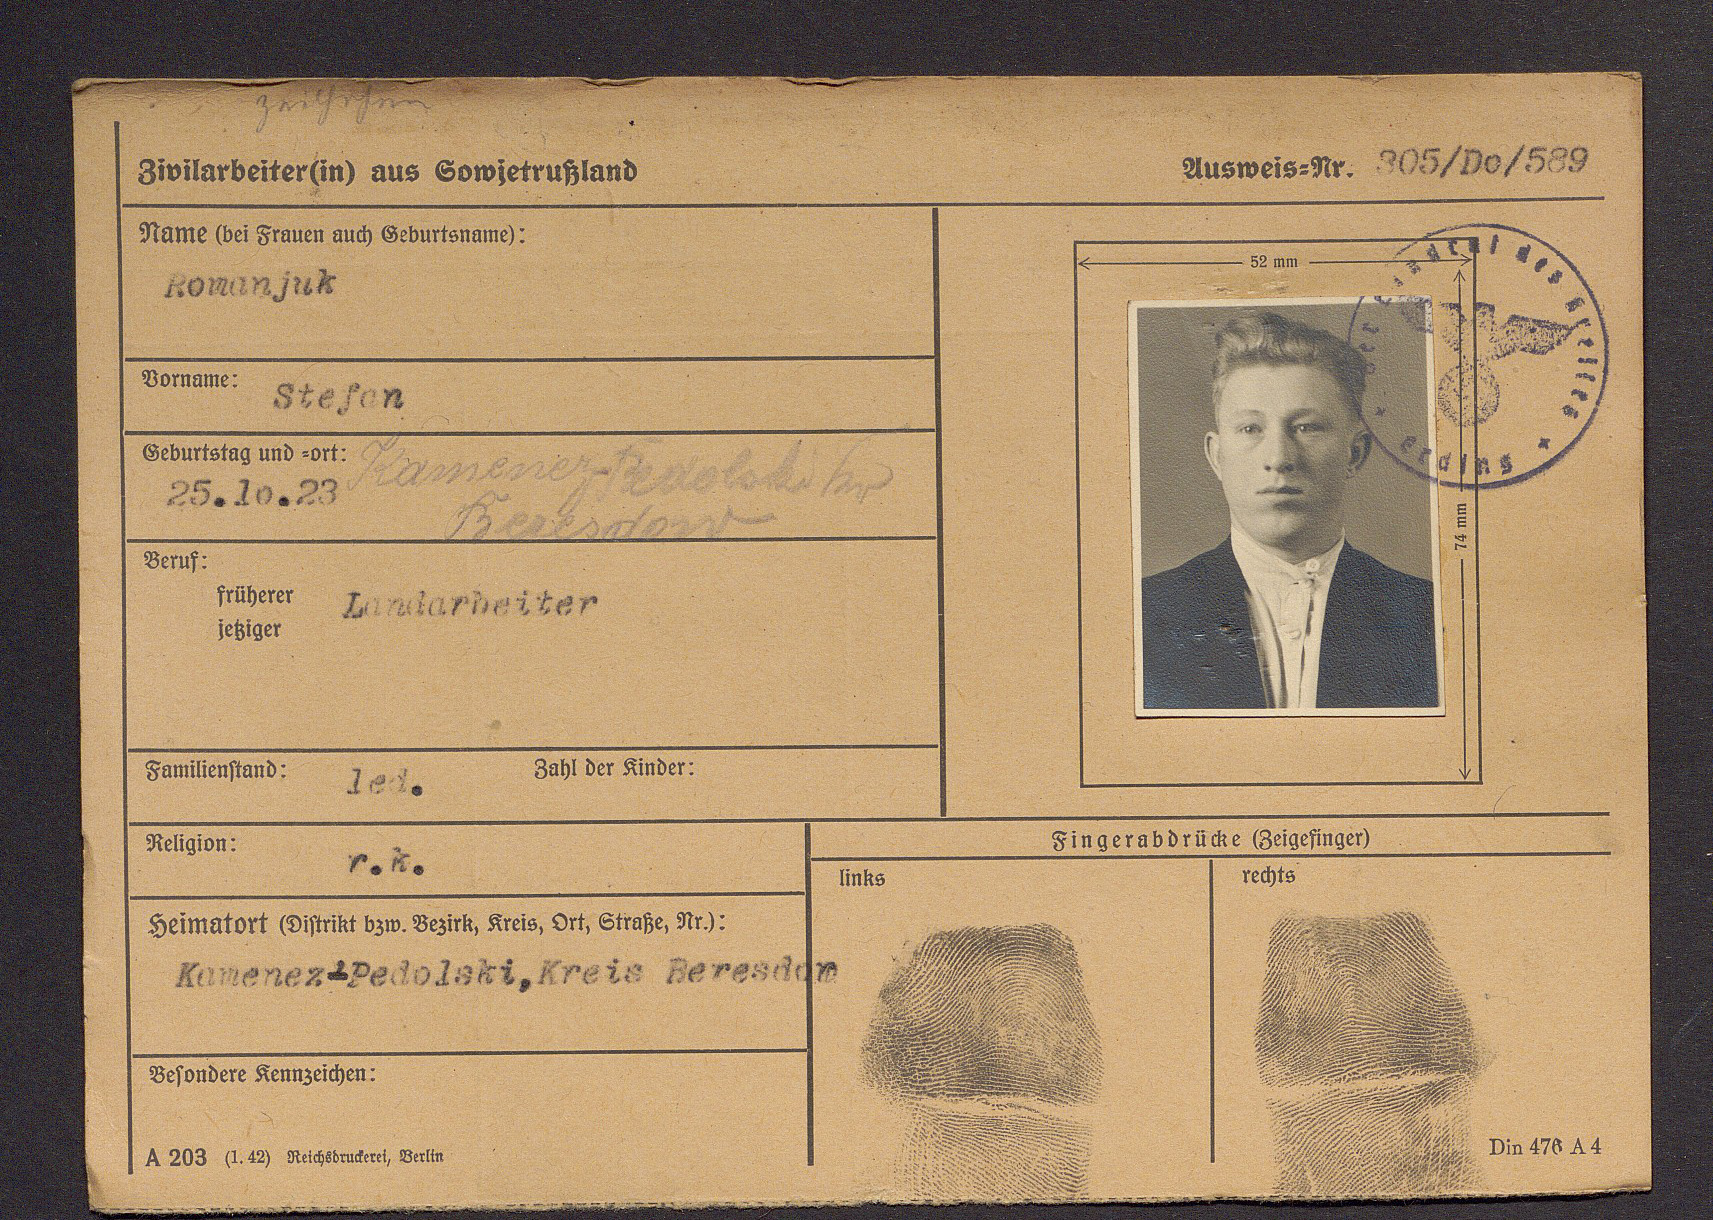 Zivilarbeiter(in) aus Sowjetrußland
Ausweis=Nr. 305/Do/589
Name (bei Frauen auch Geburtsname):
Romanjuk
Vorname: Stefan
Geburtstag und =ort: Kamenez-Pedolski Kr
25.10.23 Beresdow
Beruf:
früherer
jetziger
Landarbeiter
Familienstand: led. Zahl der Kinder:
Religion: r.k.
Heimatort (Distrikt bzw. Bezirk, Kreis, Ort, Straße, Nr.):
Kamenez-Pedolski,Kreis Beresdow
Besondere Kennzeichen:
A 203 (1. 42) Reichsdruckerei, Berlin
52 mm
74 mm
der Landrat des Kreises
Erding
Fingerabdrücke (Zeigefinger)
links
rechts
Din 476 A 4